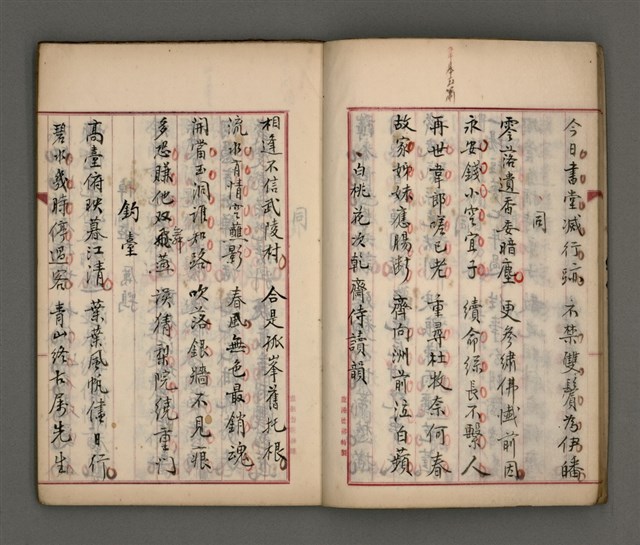 今日書堂減行跡 不禁雙鬢為伊皤
同
零落遺香委暗塵 更參繡佛懺前因
永安錢小空宜子 續命絲長不繫人
再世韋郎嗟已老 重尋杜牧奈何春
故家姊妹應腸斷 齊向洲前泣白蘋
白桃花次乾齋侍讀韻
相逢不信武陵村 合是孤峯舊托根
流水有情空蘸影 春風無色最銷魂
開當玉洞誰知路 吹落銀牆不見痕
多恐賺他双飛燕 誤猜梨院繞重門
釣臺
高臺俯映暮江清 葉葉風帆儘日行
碧水幾時停過客 青山終古屬先生